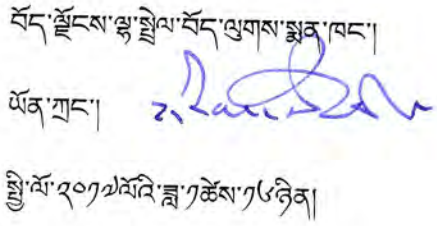 བོད་ལྗོངས་ལྷ་སྤྲེལ་བོད་ལུགས་སྨན་ཁང་།
ཡོན་ཀྲང་།
སྤྱི་ལོ་༢༠༡༧ལོའི་ཟླ་༡ཚེས་༡༦ཉིན།